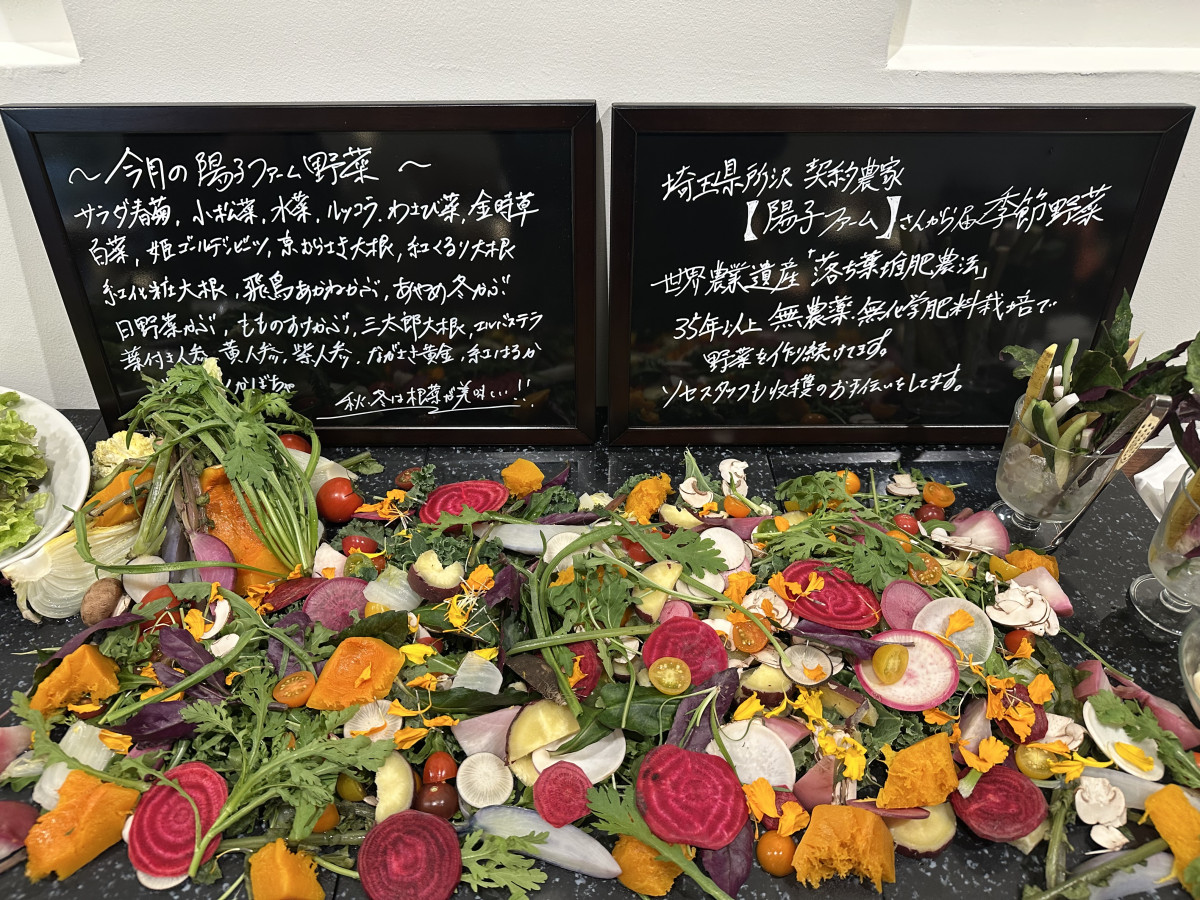 ～今月の陽子ファーム野菜～
サラダ春菊, 小松菜, 水菜, ルッコラ, わさび菜, 金時草
白菜, 姫ゴールデンビーツ, 京からさき大根, 紅くるり大根
紅化粧大根, 飛鳥あかねかぶ, あやめ冬かぶ
日野菜かぶ, もものすけかぶ, 三太郎大根, エルバステラ
葉付き人参, 黄人参, 紫人参, ながさき黄金, 紅はるか
かぼちゃ
秋・冬は根菜が美味しい!!
埼玉県所沢 契約農家
【陽子ファーム】さんから届く季節野菜
世界農業遺産「落ち葉堆肥農法」
35年以上 無農薬・無化学肥料栽培で
野菜を作り続けてます。
ソセスタッフも収穫のお手伝いをしてます。